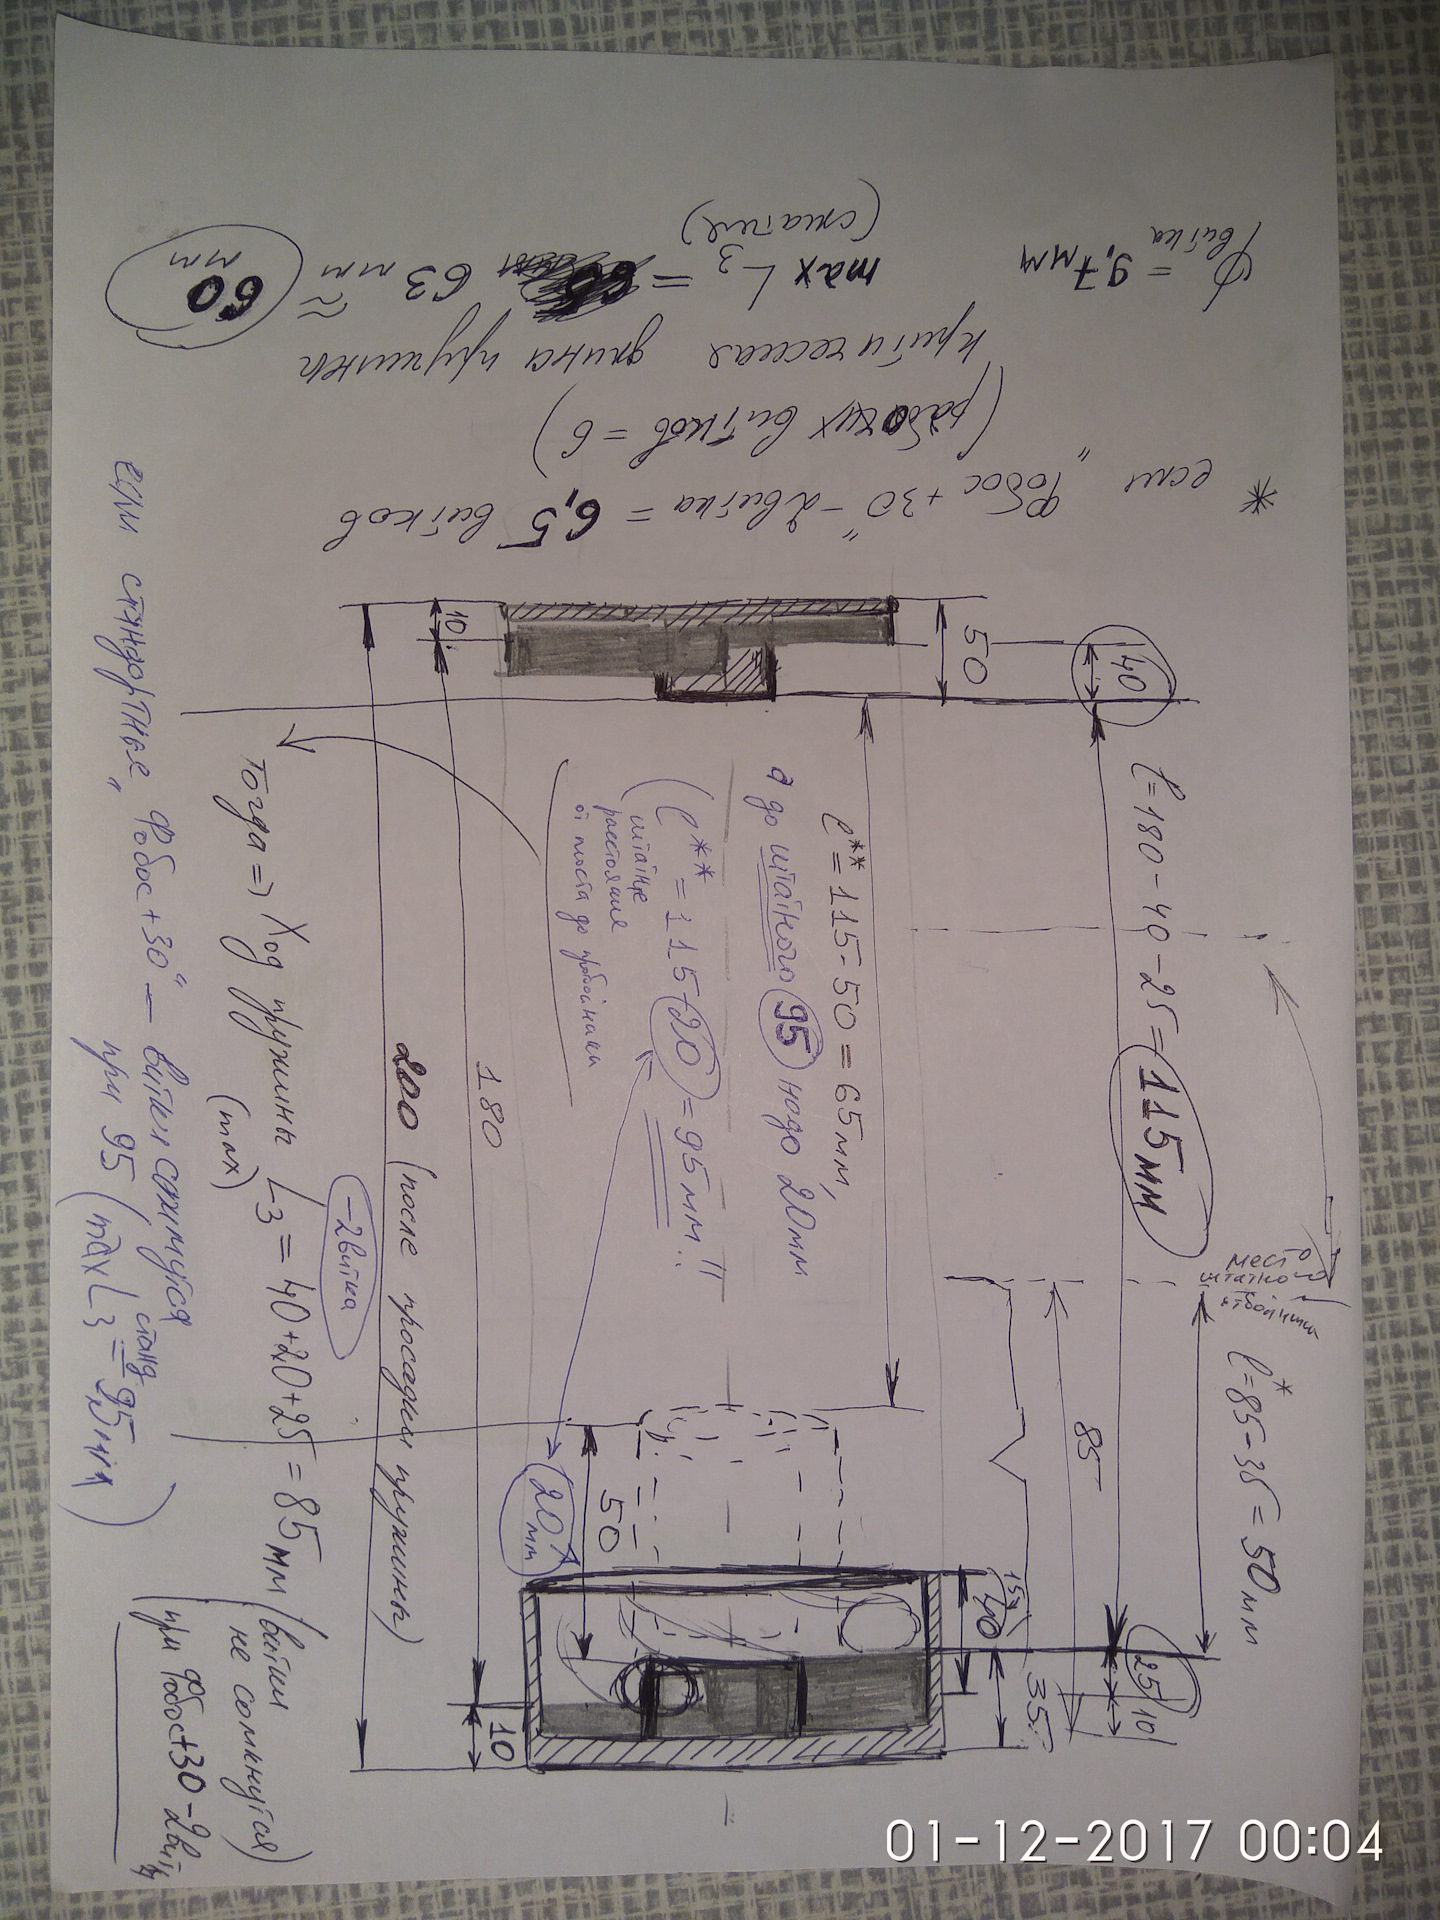 φ витка = 9,7 мм
max L3 = 63 мм ≈ 60 мм
(сжатие)
критическая длина пружины
(рабочих витков = 6)
* если "Фобос +30" - 2 витка = 6,5 витков
10
50
40
l = 180 - 40 - 25 = 115 мм
l** = 115 - 50 = 65 мм,
а до штатного 95 надо 20мм
(l** = 115 - 20 = 95 мм!!
штатное
расстояние
от моста до
место
штатного
отбойника
l* = 85 - 35 = 50 мм
85
180
200 (после просадки пружины)
-2 витка
Тогда => Ход пружины L3 = 40+20+25 = 85 мм (витки
(max)
не сомкнутся)
при Фобос+30-2вит
если стандартные "Фобос+30" — витки сомкнутся
при 95 (max L3 станд = 95 мм)
50
20 мм
15
40
25
10
35
10
01-12-2017 00:04